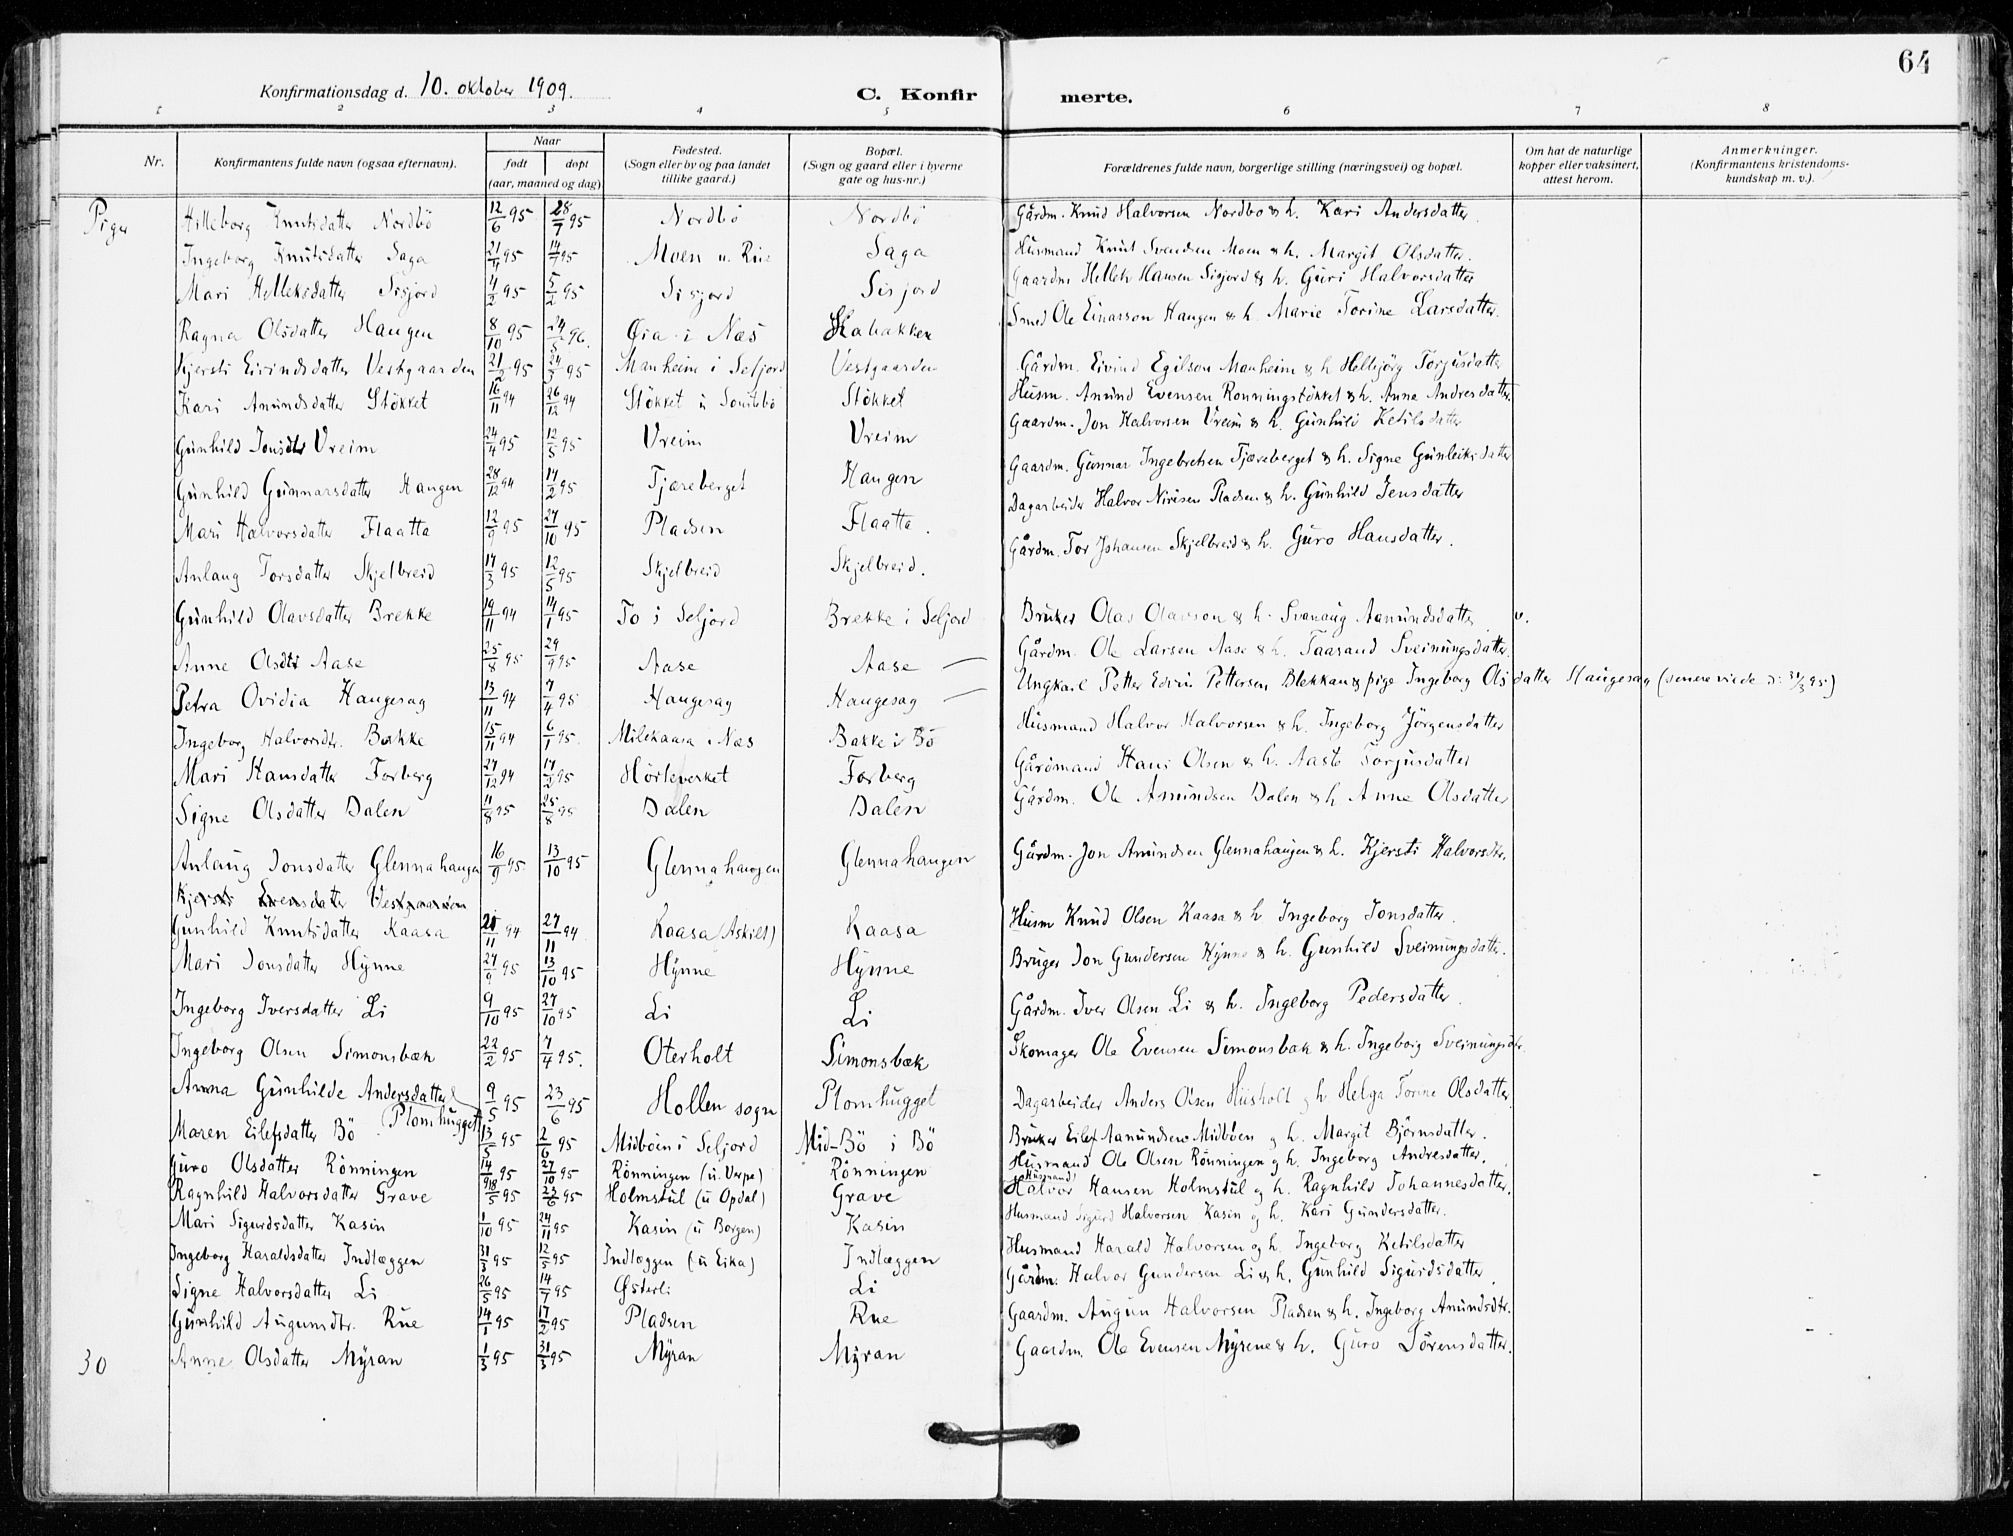 64
Konfirmationsdag d. 10. oktober 1909.
C. Konfir merte.
1 2 3 4 5 6 7 8
Nr.
Konfirmantens fulde navn (ogsaa efternavn).
Naar
født døpt
(aar, maaned og dag)
Fødested.
(Sogn eller by og paa landet
tillike gaard.)
Bopæl.
(Sogn og gaard eller i byerne
gate og hus-nr.)
Forældrenes fulde navn, borgerlige stilling (næringsvei) og bopæl.
Om hat de naturlige
kopper eller vaksinert,
attest herom.
Anmerkninger.
(Konfirmantens kristendoms-
kundskap m. v.).
Piger
Hilleborg Knutsdatter Nordbö 12/6 95 28/7 95 Nordbö Nordbö Gårdm. Knud Halvorsen Nordbo & h. Kari Andersdatter
Ingeborg Knutsdatter Saga 21/4 95 14/7 95 Moen u. Rue Saga Husmand Knut Svendsen Moen & h. Margit Olsdatter.
Mari Helleksdatter Sisjord 4/2 95 5/2 95 Sisjord Sisjord Gaardm Hellek Hansen Sisjord & h. Guri Halvorsdatter
Ragna Olsdatter Haugen 8/10 95 24/5 96. Øia i Næs Skabakken Smed Ole Einarson Haugen & h. Marie Torine Larsdatter.
Kjersti Eivindsdatter Vestgaarden 21/2 95 24/3 95 Manheim i Sefjord Vestgaarden Gårdm. Eivind Egilson Manheim & h Helbjörg Torjusdatter
Kari Amundsdatter Stökket 16/11 94 26/12 94 Stökket u Stökket Husm. Amund Evensen Ronningstökket & h. Anne Andresdatter.
Gunhild Jonsdtr Vreim 24/4 95 12/5 95 Vreim Vreim Gaardm. Jon Halvorsen Vreim & h. Gunhild Ketilsdatter
Gunhild Gunnarsdatter Haugen 28/12 94 17/2 95 Tjæreberget Haugen Gaardm. Gunnar Ingebretsen Tjæreberget & h. Signe Gunleiksdatter
Mari Halvorsdatter Flaatta 12/9 95 27/10 95 Pladsen Flaatta. Dagarbeider Halvor Nirisen Pladsen & h. Gunhild Jensdatter
Anlaug Torsdatter Skjelbreid 17/3 95 12/5 95 Skjelbreid Skjelbreid. Gårdm. Tor Johansen Skjelbreid & h. Guro Hansdatter.
Gunhild Olavsdatter Brekke 19/11 94 14/1 95 To i Seljord Brekke i Seljord Bruker Olav Olavson & h. Svanaug Aamundsdatter v.
Anne Olsdtr Aase 25/8 95 29/9 95 Aase Aase — Gårdm. Ole Larsen Aase & h. Taarand Sveinungsdatter.
Petra Ovidia Haugesag 13/11 94 7/4 95 Haugesag Haugesag — Ungkarl Petter Edvin Pettersen Blekkan & pige Ingeborg Olsdatter Haugesag (senere viede d: 31/3 95.)
Ingeborg Halvorsdtr. Bakke 15/11 94 6/1 95. Milekaasa i Næs Bakke i Bö Husmand Halvor Halvorsen & h. Ingeborg Jörgensdatter
Mari Hansdatter Forberg 27/12 94 17/2 95 Hörteverket Forberg Gårdmand Hans Olsen & h. Aaste Torjusdatter
Signe Olsdatter Dalen 11/8 95 25/8 95 Dalen Dalen Gårdm. Ole Amundsen Dalen & h Anne Olsdatter
Anlaug Jonsdatter Glennahaugen 16/9 95 13/10 95 Glennahaugen Glennahaugen Gårdm. Jon Amundsen Glennahaugen & h. Kjersti Halvorsdtr.
Gunhild Knutsdatter Kaasa 20/11 94 27/11 94 Kaasa (Askilt) Kaasa Husm Knud Olsen Kaasa & h Ingeborg Jonsdatter.
Mari Jonsdatter Hynne 27/9 95 13/10 95 Hynne Hynne Bruger Jon Gundersen Hynne & h. Gunhild Sveinungsdatter.
Ingeborg Iversdatter Li 9/10 95 27/10 95 Li Li Gårdm. Iver Olsen Li & h. Ingeborg Pedersdatter.
Ingeborg Olsen Simonsbæk 22/2 95 7/4 95. Oterholt Simonsbæk Skomager Ole Evensen Simonsbak & h. Ingeborg Sveinungsdtr.
Anna Gunhilde Andersdatter Plomhugget 9/5 95 23/6 95 Hollen sogn Plomhugget Dagarbeider Anders Olsen Husholt og h Helga Torine Olsdatter.
Maren Eilefsdatter Bö 13/5 95 2/6 95 Midbøen i Seljord Mid-Bö i Bö Bruker Eilef Aamundsen Midbøen og h. Margit Björnsdatter.
Guro Olsdatter Rönningen 14/9 95 27/10 95 Rönningen (u. Verpe) Rönningen Husmand Ole Olsen Rönningen og h. Ingeborg Andresdatter.
Ragnhild Halvorsdatter Grave 18/5 95 23/6 95 Holmstul (u Opdal) Grave (Husmand) Halvor Hansen Holmstul og h. Ragnhild Johannesdatter.
Mari Sigurdsdatter Kasin 1/10 95 24/11 95 Kasin (u Borgen) Kasin Husmand Sigurd Halvorsen Kasin og h. Kari Gundersdatter.
Ingeborg Haraldsdatter Indlæggen 31/3 95 12/5 95 Indlæggen (u Eika) Indlæggen Husmand Harald Halvorsen og h. Ingeborg Ketilsdatter
Signe Halvorsdatter Li 26/5 95 14/7 95 Østerli Li Gårdm. Halvor Gundersen Li & h. Gunhild Sigurdsdatter.
Gunhild Augunsdtr. Rue 14/1 95 17/2 95 Pladsen Rue Gaardm. Augun Halvorsen Pladsen & h. Ingeborg Amundsdtr.
30 Anne Olsdatter Myran 1/3 95 31/3 95 Myran Myran Gaardm. Ole Evensen Myrene & h. Guro Sörensdatter.